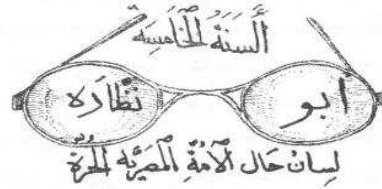 السنة الخامسة
أبو نظاره
لسان حال الامة المصريه الحرة